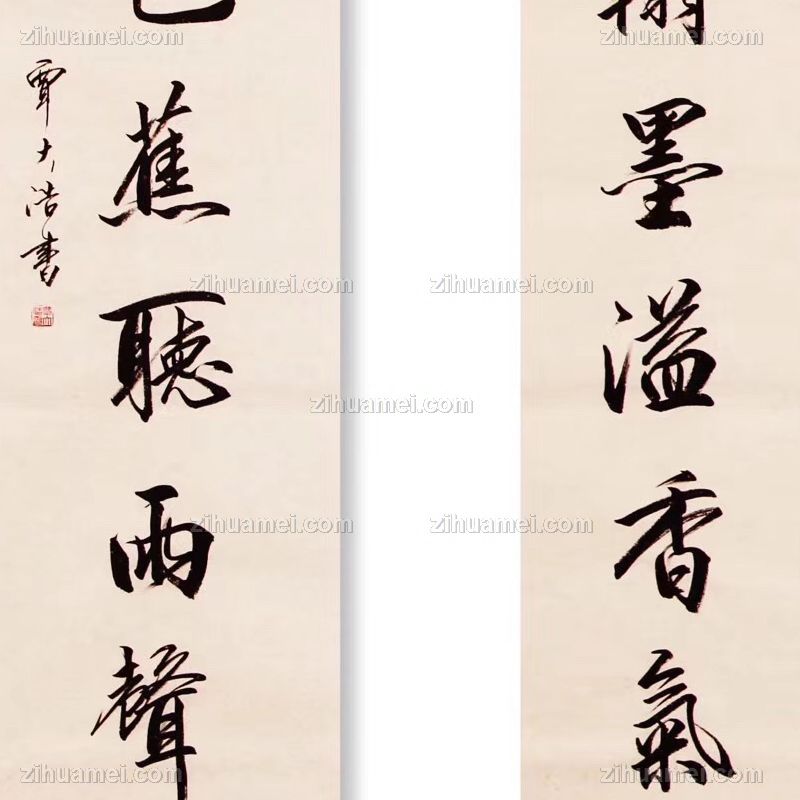 墨溢香氣
蕉聽雨聲
覃大浩書
zihuamei.com
zihuamei.com
zihuamei.com
zihuamei.com
zihuamei.com
zihuamei.com
zihuamei.com
zihuamei.com
zihuamei.com
zihuamei.com
zihuamei.com